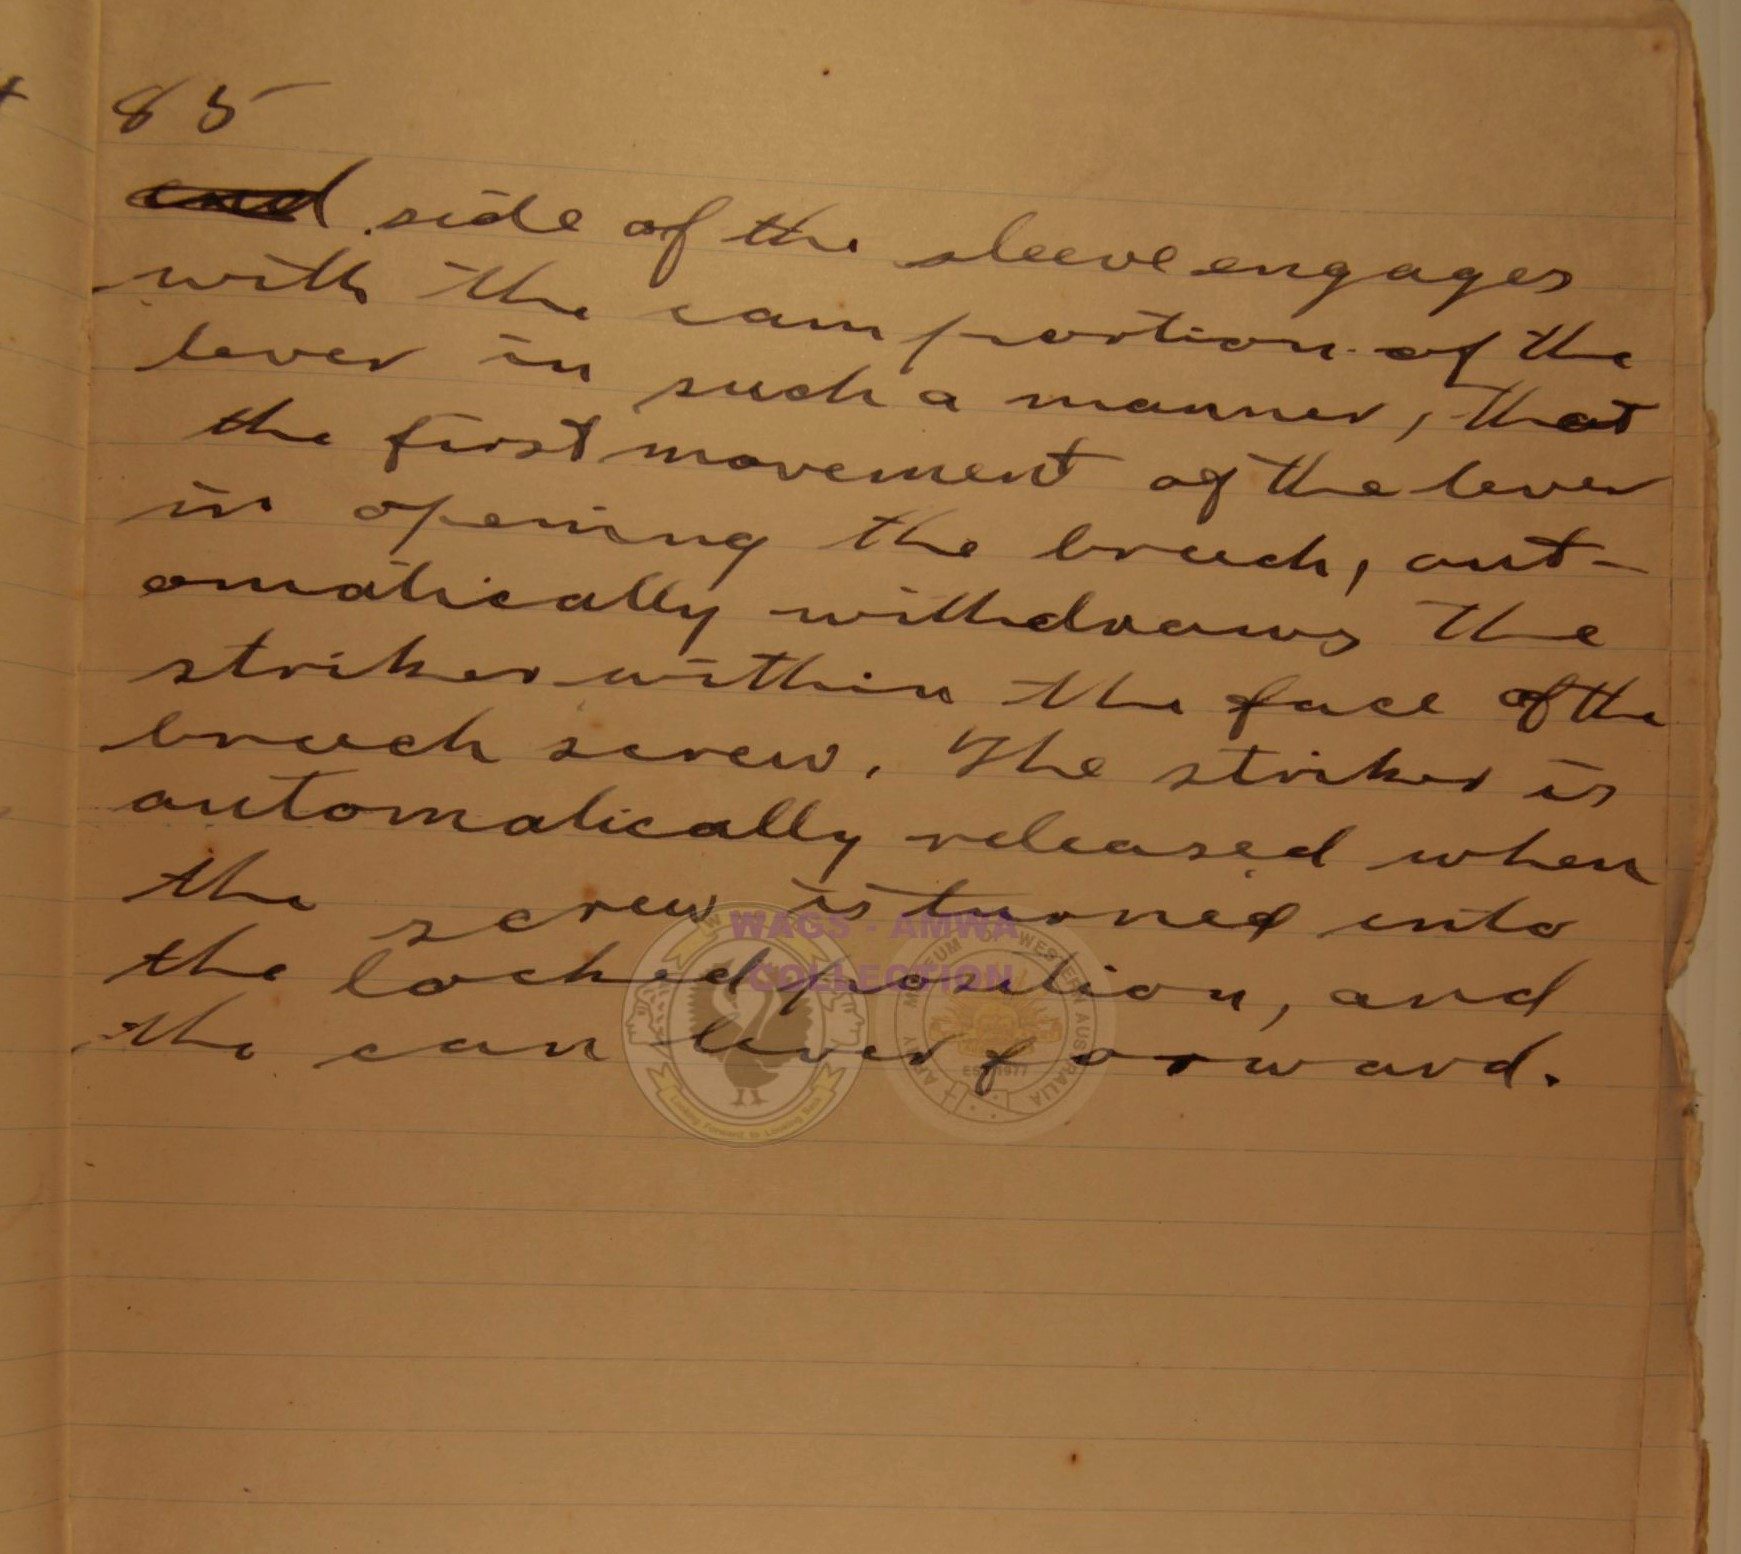 85
and side of the sleeve engages
with the cam portion of the
lever in such a manner, that
the first movement of the lever
in opening the breech, aut-
omatically withdraws the
striker within the face of the
breech screw. The striker is
automatically released when
the screw is turned into
the locked position, and
the can lever forward.
WAGS - AMWA
COLLECTION
ARMY MUSEUM OF WESTERN AUSTRALIA
EST 1977
Looking Forward to Looking Back